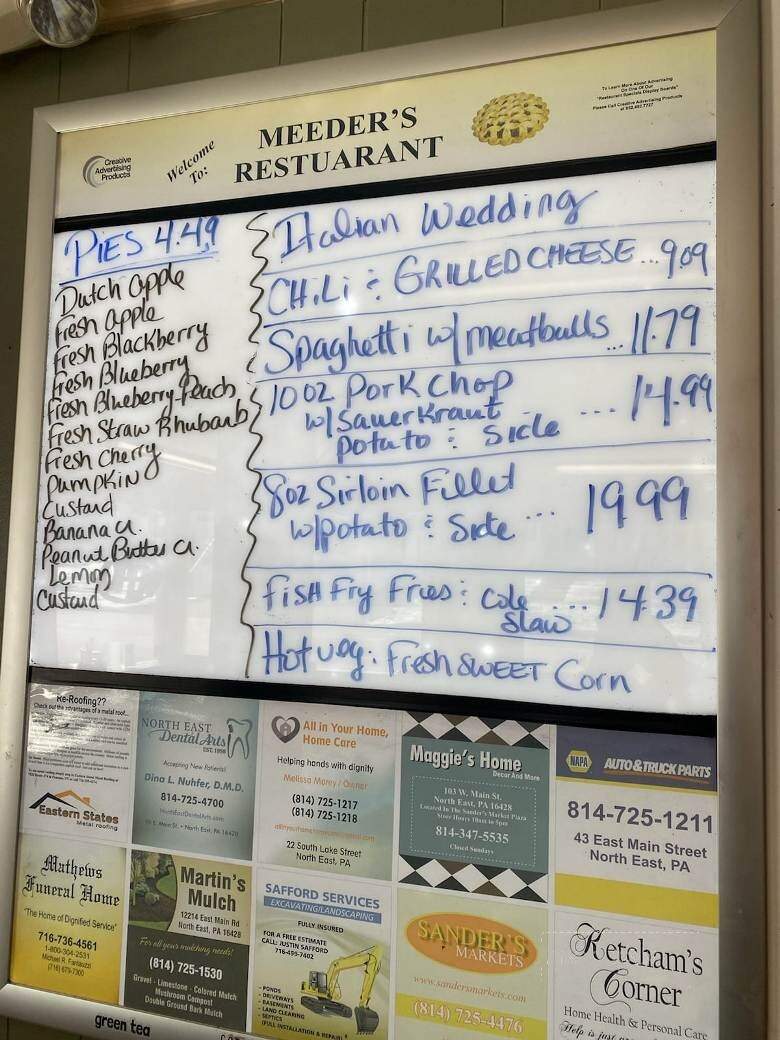 To Learn More About Advertising
On One Of Our
"Restaurant Specials Display Boards"
Please Call Creative Advertising Products
Creative
Advertising
Products
Welcome
To:
MEEDER'S
RESTUARANT
PIES 4.49
Dutch apple
Fresh apple
Fresh Blackberry
Fresh Blueberry
Fresh Blueberry-Peach
Fresh Straw Rhubarb
Fresh Cherry
PUMPKIN
Custard
Banana cr.
Peanut Butter cr.
Lemon
Custard
Italian Wedding
CHiLi & GRILLED CHEESE...9.09
Spaghetti w/meatballs...11.79
10 oz Pork Chop
w/Sauerkraut
potato & Side ... 14.99
8oz Sirloin Fillet
w/potato & Side ... 19.99
FiSH Fry Fries & Cole ...14.39
Slaw
Hot veg: Fresh SWEET Corn
Re-Roofing??
Check out the advantages of a metal roof...
Eastern States
Metal roofing
NORTH EAST
Dental Arts
EST. 1898
Accepting New Patients!
Dina L. Nuhfer, D.M.D.
814-725-4700
NorthEastDentalArts.com
E. Main St. • North East, PA 16428
All in Your Home,
Home Care
Helping hands with dignity
Melissa Morey / Owner
(814) 725-1217
(814) 725-1218
22 South Lake Street
North East, PA
Maggie's Home
Decor And More
103 W. Main St.
North East, PA 16428
Located In The Sander's Market Plaza
Store Hours 10am to 5pm
814-347-5535
Closed Sundays
NAPA
AUTO & TRUCK PARTS
814-725-1211
43 East Main Street
North East, PA
Mathews
Funeral Home
"The Home of Dignified Service"
716-736-4561
1-800-304-2531
Michael R. Fantauzzi
(716) 679-7300
Martin's
Mulch
12214 East Main Rd
North East, PA 16428
For all your mulching needs!
(814) 725-1530
Gravel - Limestone - Colored Mulch
Mushroom Compost
Double Ground Bark Mulch
SAFFORD SERVICES
EXCAVATING/LANDSCAPING
FULLY INSURED
FOR A FREE ESTIMATE
CALL: JUSTIN SAFFORD
716-499-7402
- PONDS
- DRIVEWAYS
- BASEMENTS
- LAND CLEARING
- SEPTICS
(FULL INSTALLATION & REPAIR)
SANDER'S
MARKETS
www.sandersmarkets.com
(814) 725-4476
Ketcham's
Corner
Home Health & Personal Care
Help is just
green tea